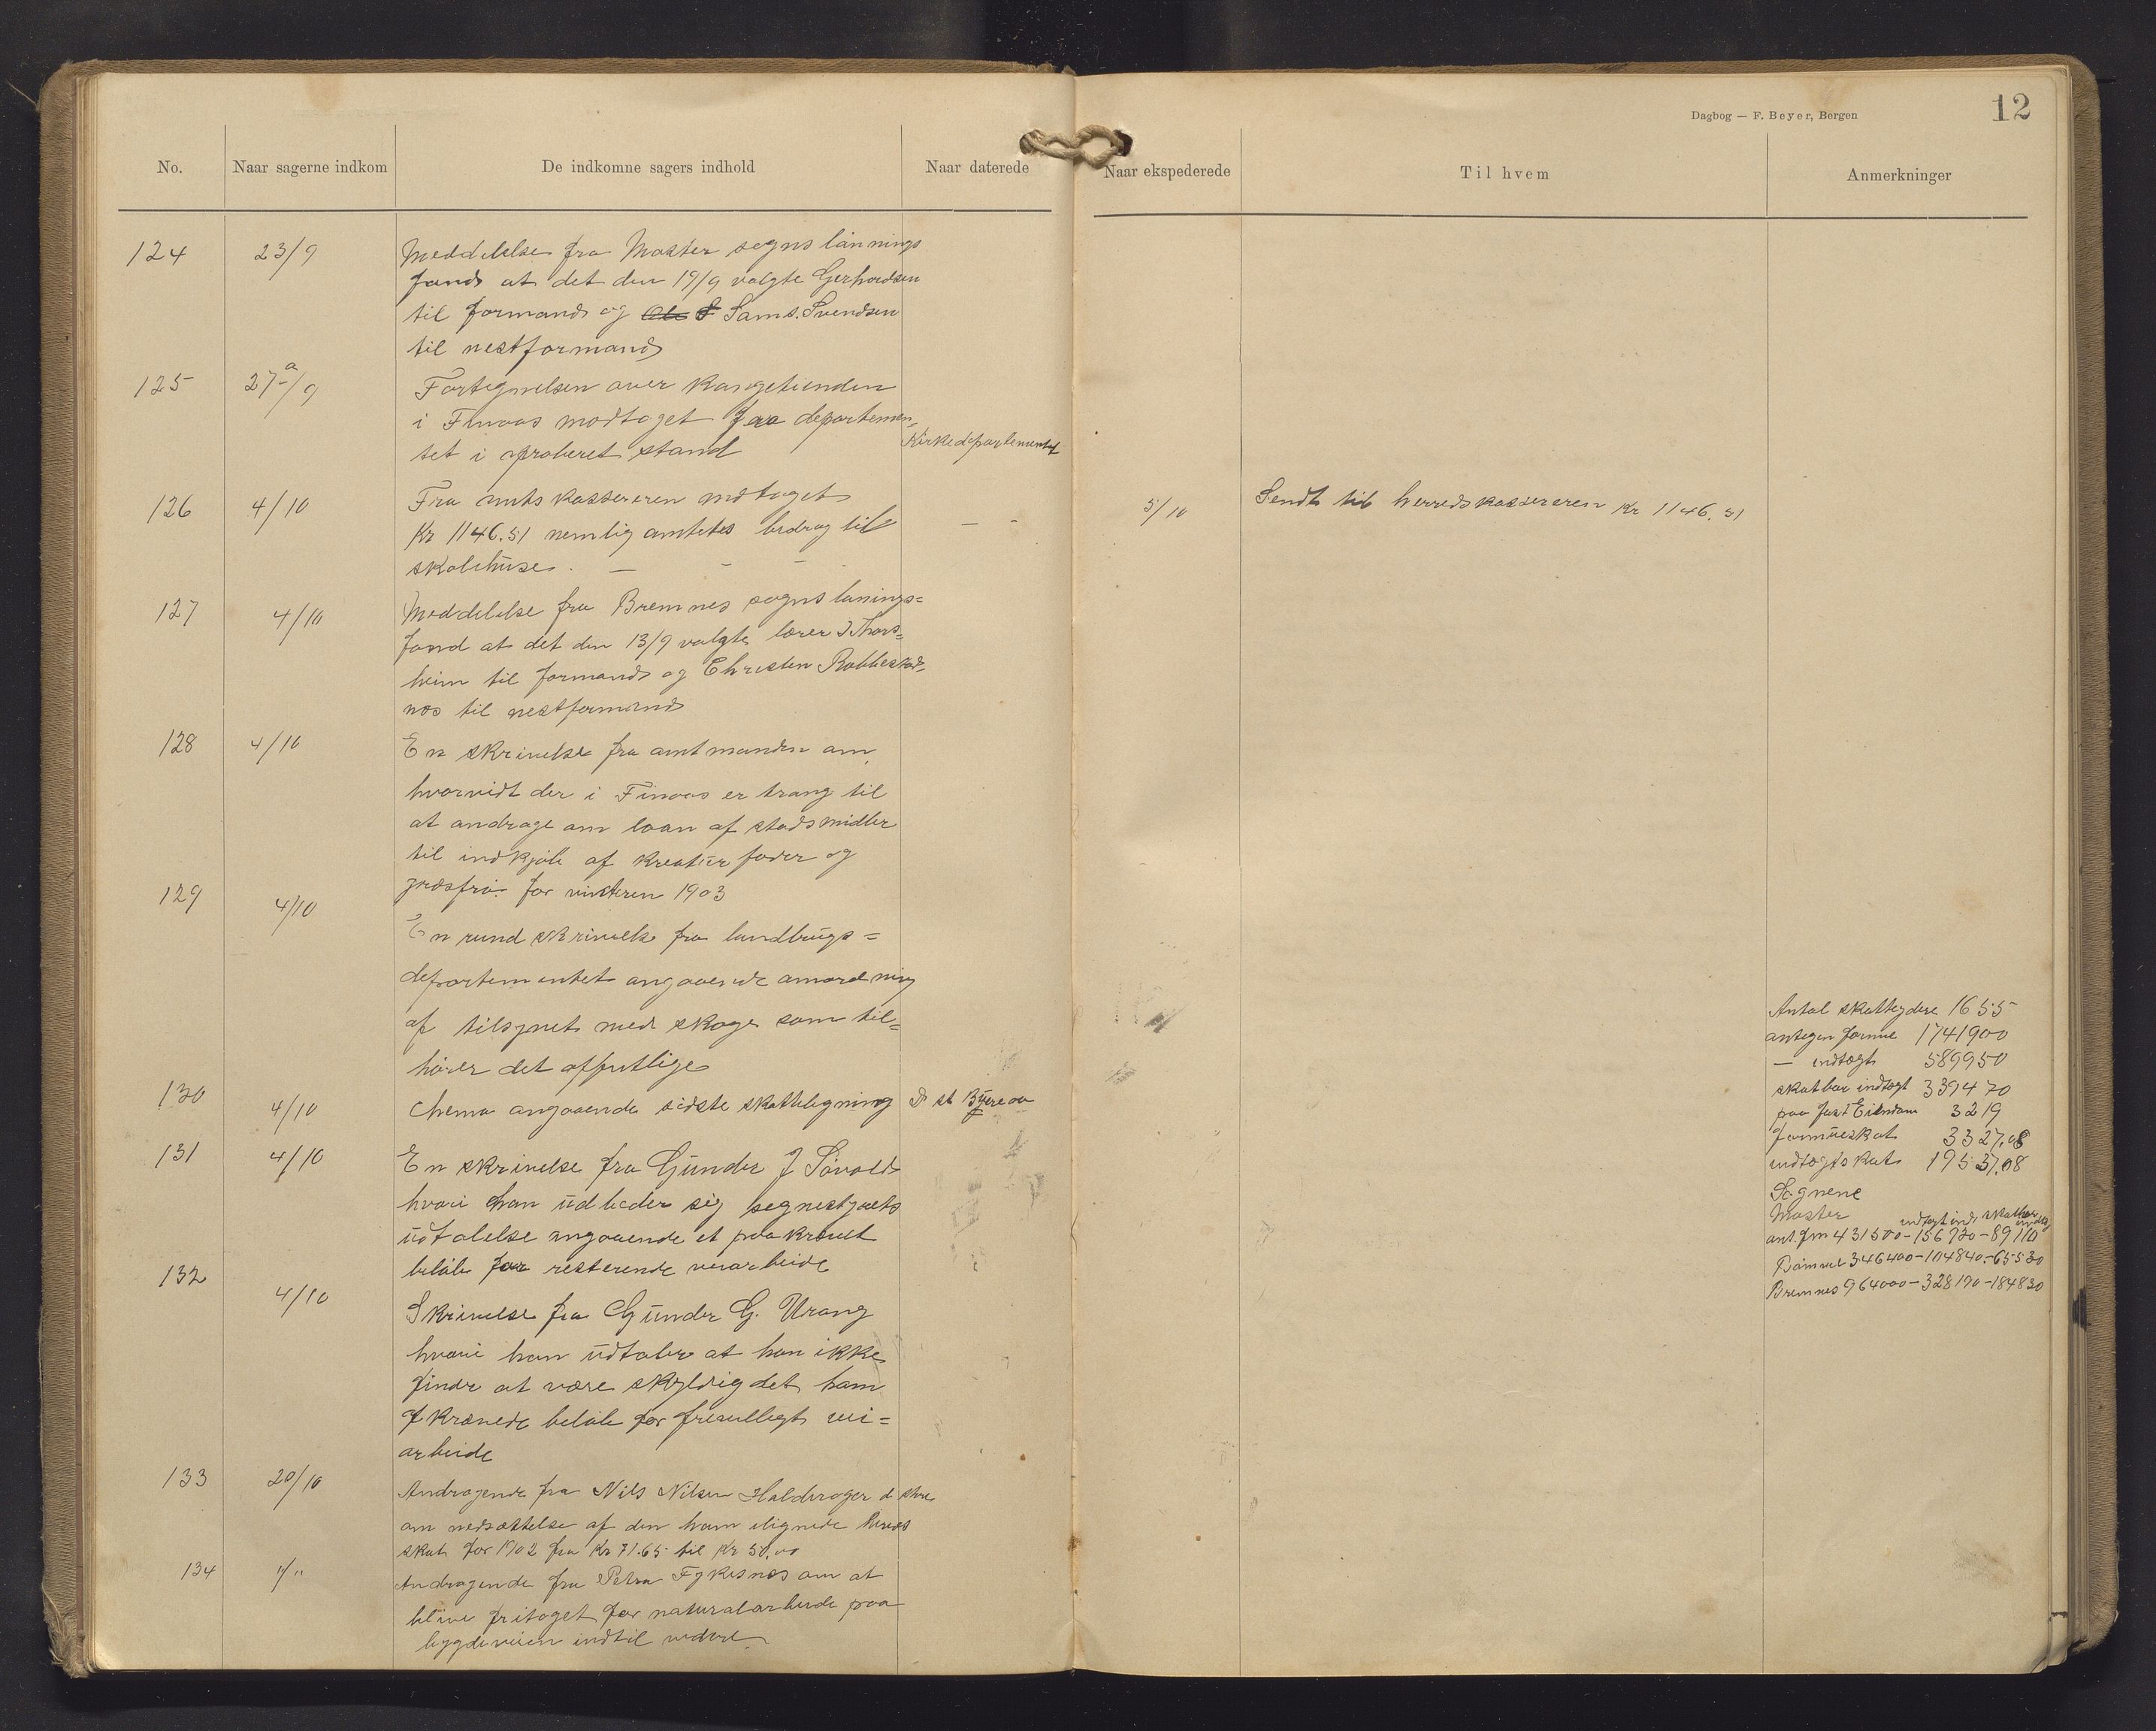 Dagbog — F. Beyer, Bergen
12
No.
Naar sagerne indkom
De indkomne sagers indhold
Naar daterede
Naar ekspederede
Til hvem
Anmerkninger
124 23/9 Meddelelse fra Moster sogns lånnings
fond at det den 19/9 valgte Gerhardsen
til formand og Sams. Svendsen
til nestformand
125 27/9 Fortegnelsen over Kongetienden
i Finaas modtaget fra departemen-
tet i aproberet stand Kirkedepartementet
126 4/10 Fra amtskassereren modtaget
Kr 1146.51 nemlig amtets bidrag til
skolehuse. — - -
5/10 Sendt til herredskassereren Kr 1146.51
127 4/10 Meddelelse fra Bremnes sogns lånings=
fond at det den 13/9 valgte lærer I Thors=
heim til formand og Christen Rubbestad-
nes til nestformand
128 4/10 En skrivelse fra amtmanden om
hvorvidt der i Finaas er trang til
at andrage om laan af statsmidler
til indkjøb af kreaturfoder og
græsfrø for vinteren 1903
129 4/10 En rundskrivelse fra landbrugs=
departementet angaaende anordning
af tilsynet med skoge som til=
hører det offentlige
130 4/10 Chema angaaende sidste skatteligning D st Byreau
131 4/10 En skrivelse fra Gunder J Søvold
hvori han udbeder sig
udtalelse angaaende et paakrævet
beløb for resterende veiarbeide
132 4/10 Skrivelse fra Gunder G. Urang
hvori han udtaler at han ikke
finder at være skyldig det ham
afkrævede beløb for frivilligt vei=
arbeide
133 20/10 Andragende fra Nils Nilsen Haldorager d
om nedsættelse af den ham ilignede herreds
skat for 1902 fra Kr 71.65 til Kr 50,00
134 "/" Andragende fra Petra Fykesnes om at
blive fritaget for naturalarbeide paa
bygdeveien indtil videre
Antal skattydere 1655
antagen formue 1741900
— indtægt 589950
skatbar indtægt 339470
paa fast Eiendom 3219
formueskat 3327,08
indtægtsskat 19537,08
Sognene
Moster indtægt skatbar
ant. fm 431500-156920-89110
Bømmel 346400-104840-65530
Bremnes 964000-328190-184830